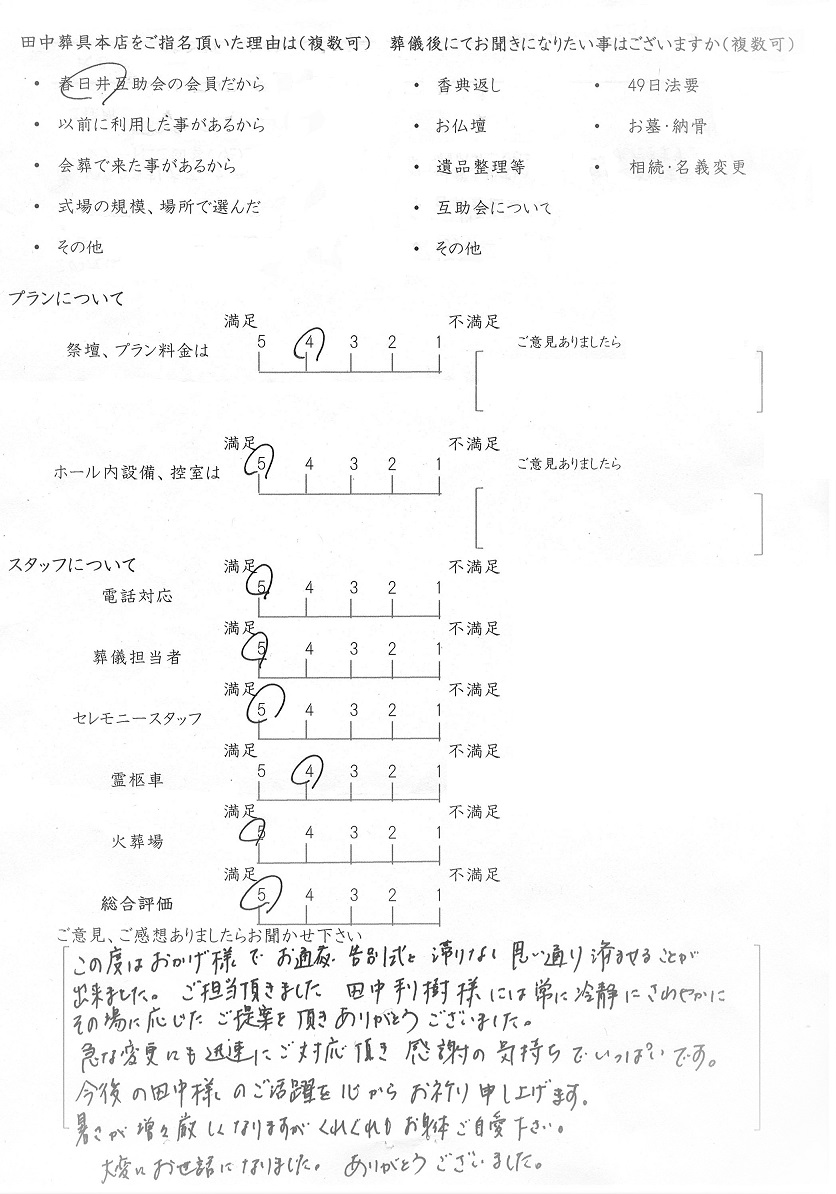 田中葬具本店をご指名頂いた理由は(複数可)
・ 春日井互助会の会員だから
・ 以前に利用した事があるから
・ 会葬で来た事があるから
・ 式場の規模、場所で選んだ
・ その他
葬儀後にてお聞きになりたい事はございますか(複数可)
・ 香典返し ・ 49日法要
・ お仏壇 ・ お墓・納骨
・ 遺品整理等 ・ 相続・名義変更
・ 互助会について
・ その他
プランについて
満足 不満足
祭壇、プラン料金は 5 4 3 2 1 ご意見ありましたら
満足 不満足
ホール内設備、控室は 5 4 3 2 1 ご意見ありましたら
スタッフについて
満足 不満足
電話対応 5 4 3 2 1
満足 不満足
葬儀担当者 5 4 3 2 1
満足 不満足
セレモニースタッフ 5 4 3 2 1
満足 不満足
霊柩車 5 4 3 2 1
満足 不満足
火葬場 5 4 3 2 1
満足 不満足
総合評価 5 4 3 2 1
ご意見、ご感想ありましたらお聞かせ下さい
この度はおかげ様で お通夜・告別式と 滞りなく 思い通り 済ませることが
出来ました。 ご担当頂きました 田中利樹様には常に冷静にさわやかに
その場に応じた ご提案を 頂きありがとうございました。
急な変更にも迅速にご対応頂き 感謝の気持ちでいっぱいです。
今後の田中様のご活躍を心からお祈り申し上げます。
暑さが増々厳しくなりますがくれぐれもお身体ご自愛下さい。
大変にお世話になりました。 ありがとうございました。